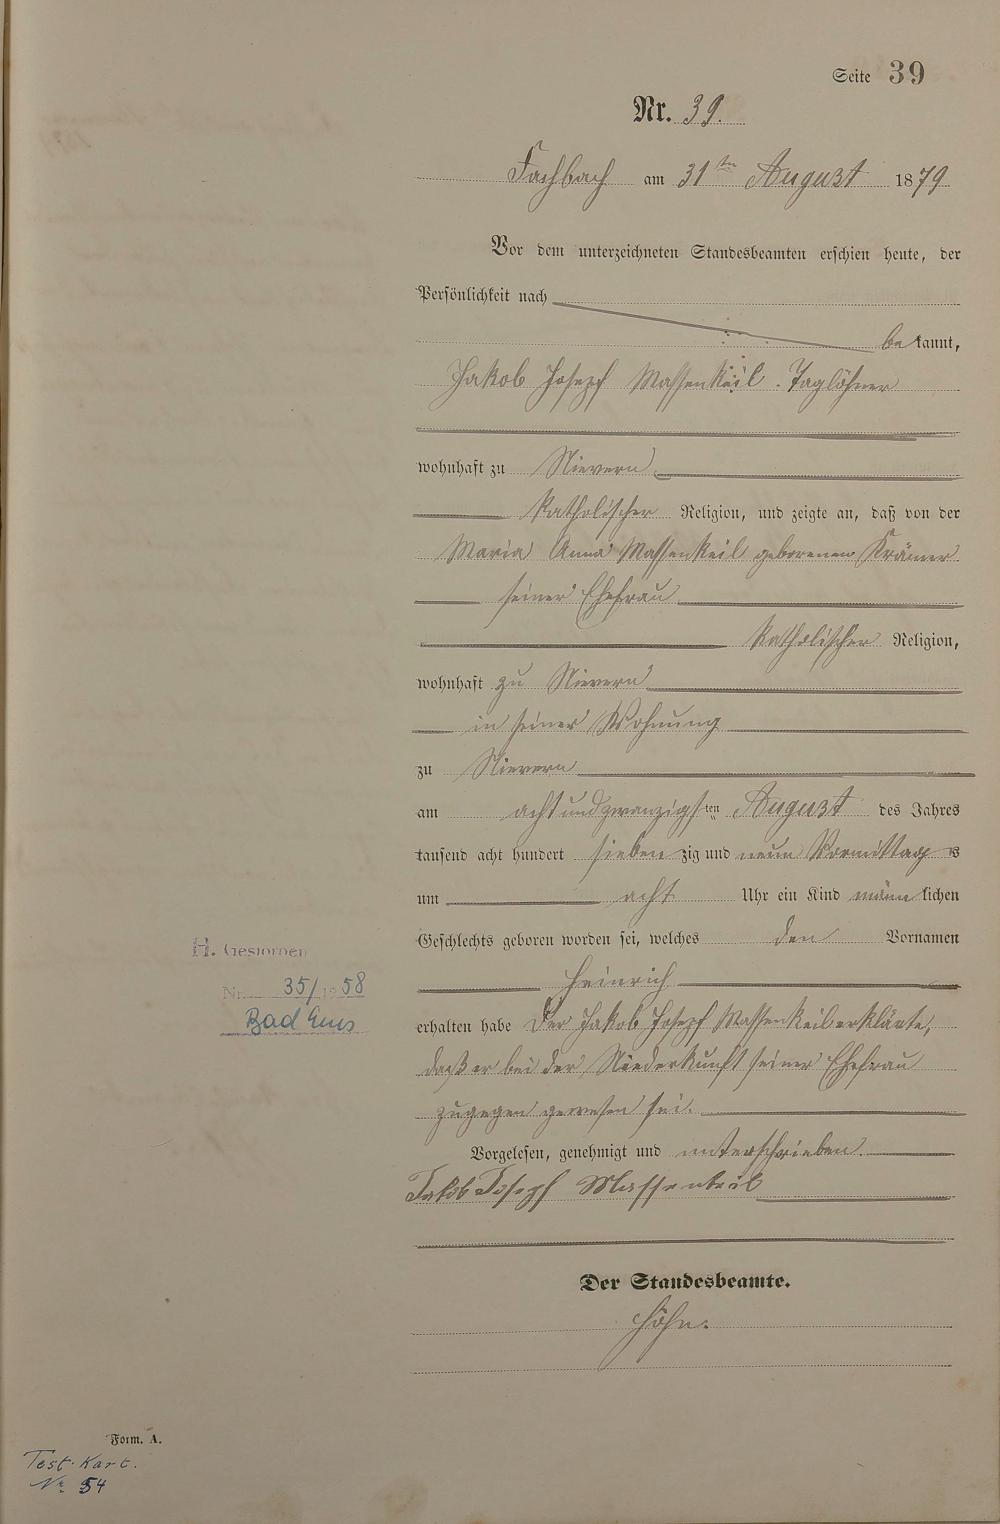 Seite 39
Nr. 39.
Fachbach am 31ten August 1879
Vor dem unterzeichneten Standesbeamten erschien heute, der
Persönlichkeit nach
bekannt,
Jakob Josepf Massenkeil. Taglöhner
wohnhaft zu Nievern
katholischer Religion, und zeigte an, daß von der
Maria Anna Massenkeil geborenen Krämer
seiner Ehefrau
katholischer Religion,
wohnhaft zu Nievern
in seiner Wohnung
zu Nievern
am achtundzwanzigsten August des Jahres
tausend acht hundert siebenzig und neun Vormittags
um acht Uhr ein Kind männlichen
Geschlechts geboren worden sei, welches den Vornamen
Heinrich
erhalten habe Der Jakob Josepf Massenkeil erklärte,
daß er bei der Niederkunft seiner Ehefrau
zugegen gewesen sei.
Vorgelesen, genehmigt und unterschrieben.
Jakob Josepf Massenkeil
Der Standesbeamte.
Höhn.
H. Gestorben
Nr. 35/1958
Bad Ems
Form. A.
Test. Kart.
Nr. 54